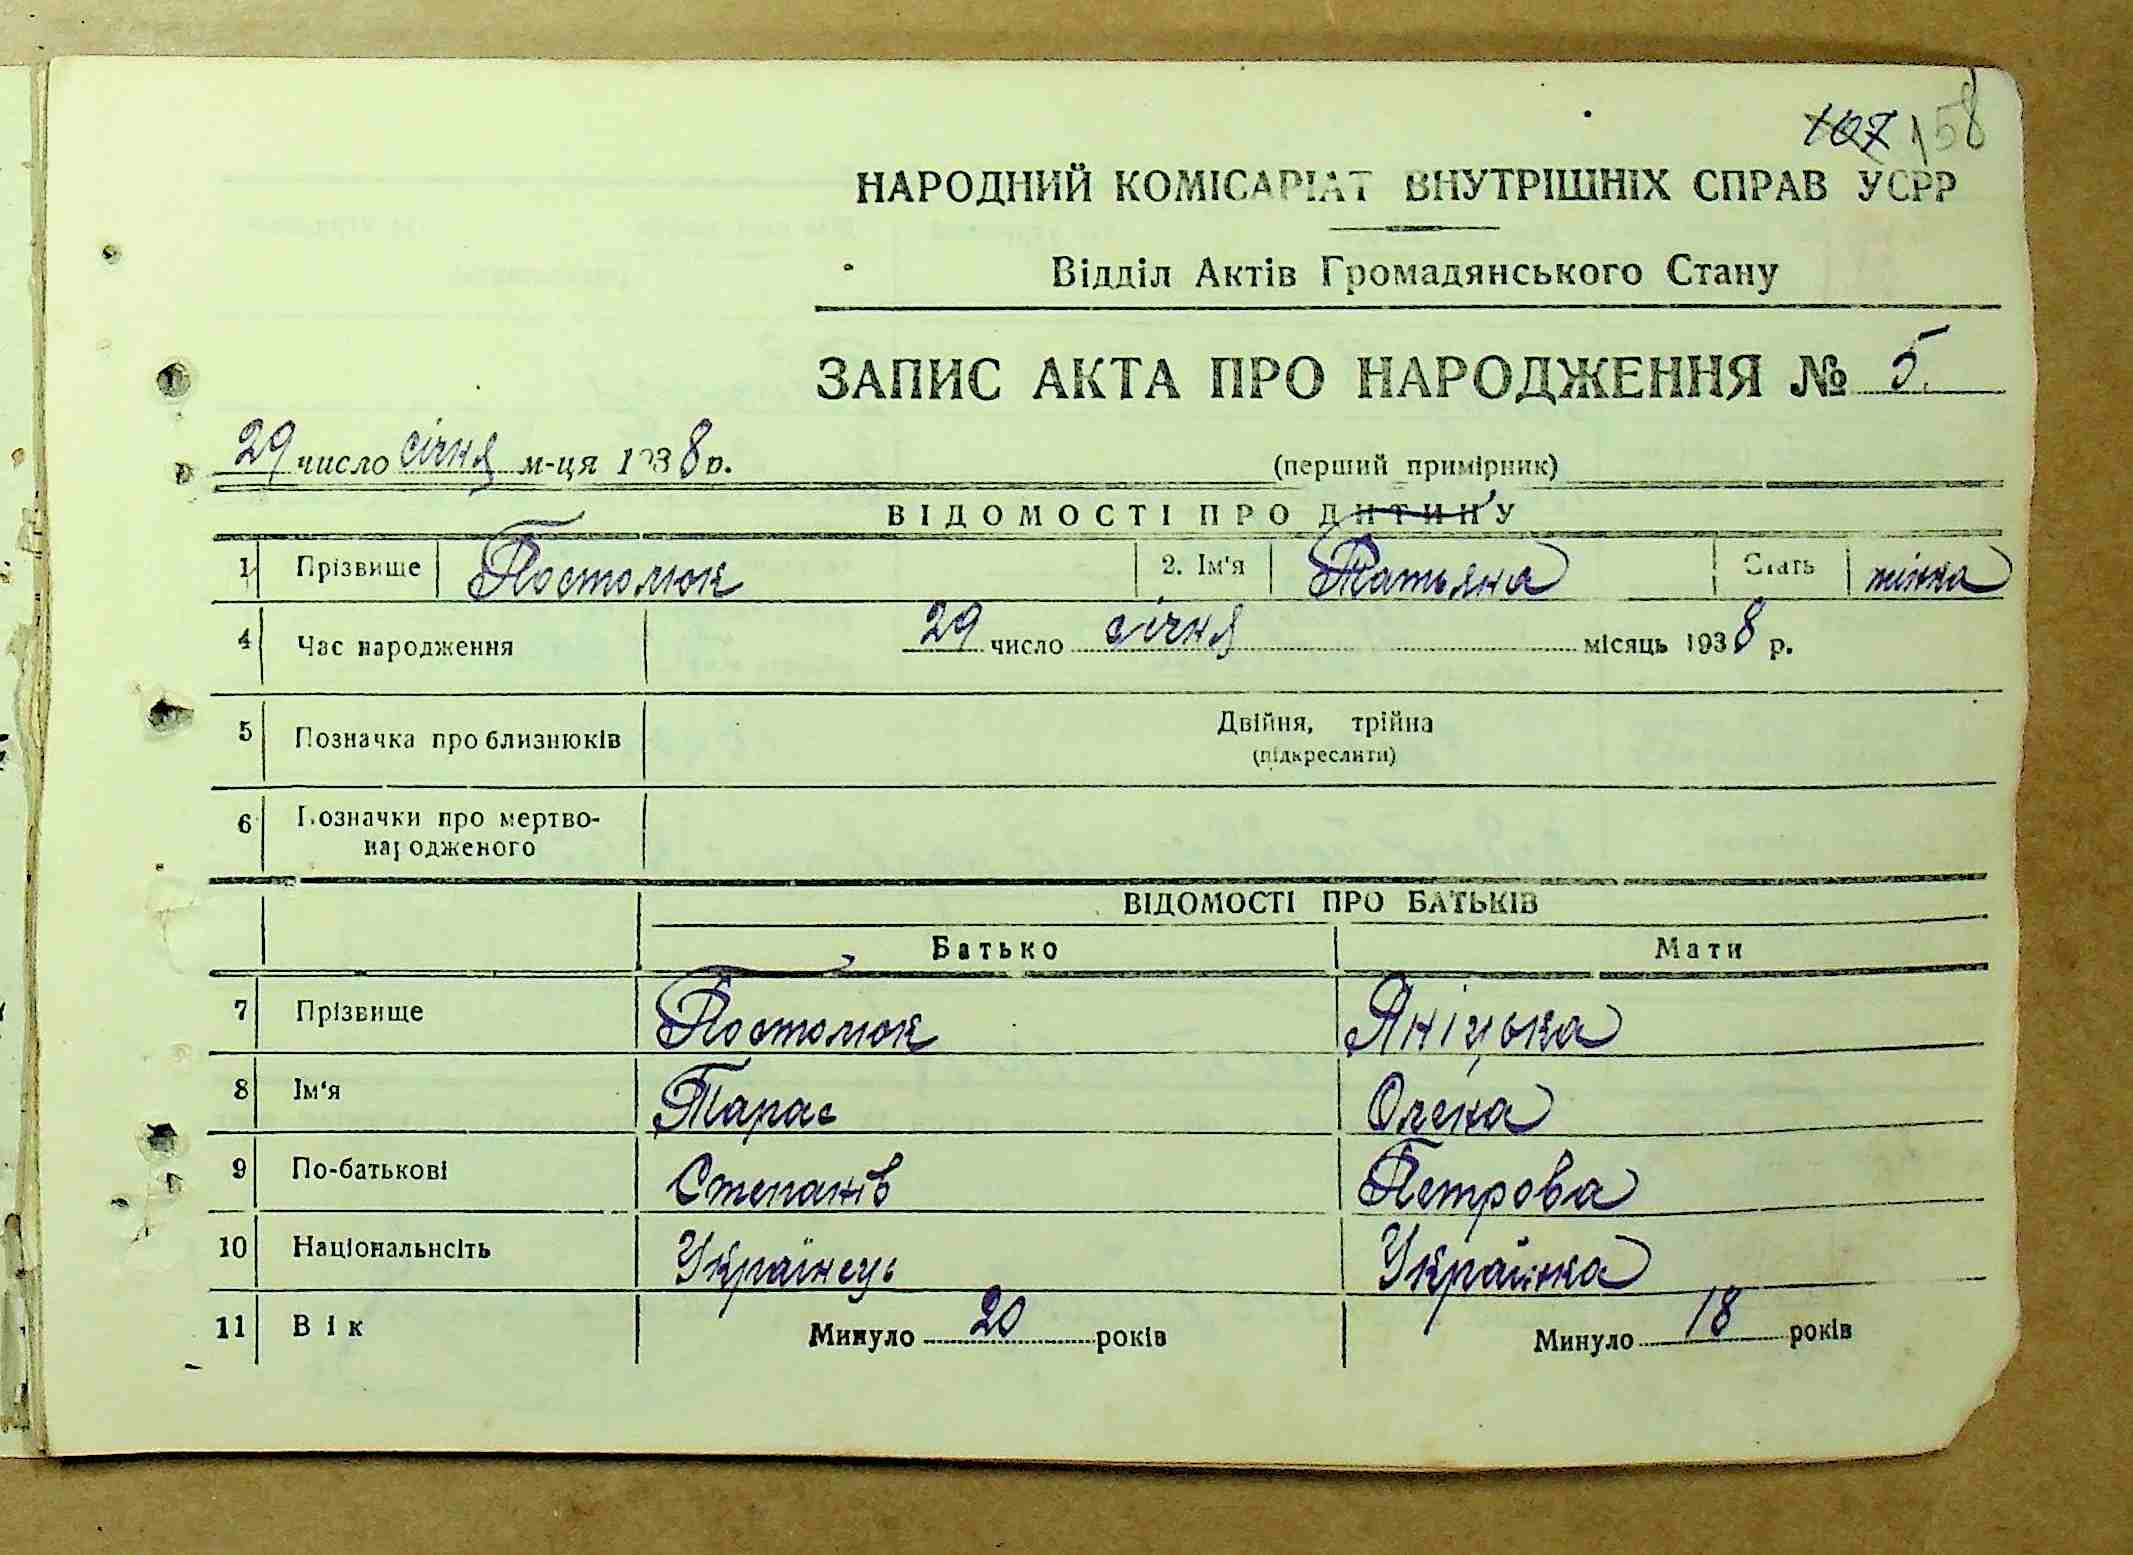 107 158
НАРОДНИЙ КОМІСАРІАТ ВНУТРІШНІХ СПРАВ УСРР
Відділ Актів Громадянського Стану
ЗАПИС АКТА ПРО НАРОДЖЕННЯ № 5.
29 число січня м-ця 1938 р.
(перший примірник)
ВІДОМОСТІ ПРО ДИТИНУ
1 Прізвище Постолюк 2. Ім'я Татьяна Стать жінка
4 Час народження 29 число січня місяць 1938 р.
5 Позначка про близнюків Двійня, трійна
(підкреслити)
6 Позначки про мертво-
народженого
ВІДОМОСТІ ПРО БАТЬКІВ
Батько Мати
7 Прізвище Постолюк Яніцька
8 Ім'я Тарас Олена
9 По-батькові Степанів Петрова
10 Національнсіть Українець Українка
11 Вік Минуло 20 років Минуло 18 років